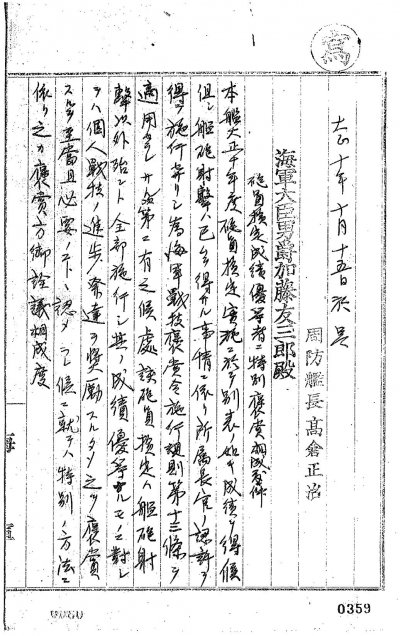 寫
大正十年十月十五日於呉
周防艦長高倉正治
海軍大臣男爵加藤友三郎殿
砲員檢定成績優等者ニ特別褒賞相成度件
本艦大正十年度砲員檢定実施ニ於テ別表ノ如キ成績ヲ得候
但シ艦砲射撃ハ已ムヲ得サル事情ニ依リ所属長官ノ認許ヲ
得テ施行セサリシ為海軍戰技褒賞令施行細則第十三條ヲ
適用セラレサル次第ニ有之候處該砲員檢定ハ艦砲射
撃以外殆ント全部施行シ其ノ成績優等ナルモノニ對シ
テハ個人戰技ノ進歩発達ヲ奨励スルタメ之ヲ褒賞
スルヲ至當且必要ノコトト認メラレ候ニ就テハ特別ノ方法ニ
依リ之カ褒賞方御詮議相成度
海軍
0359